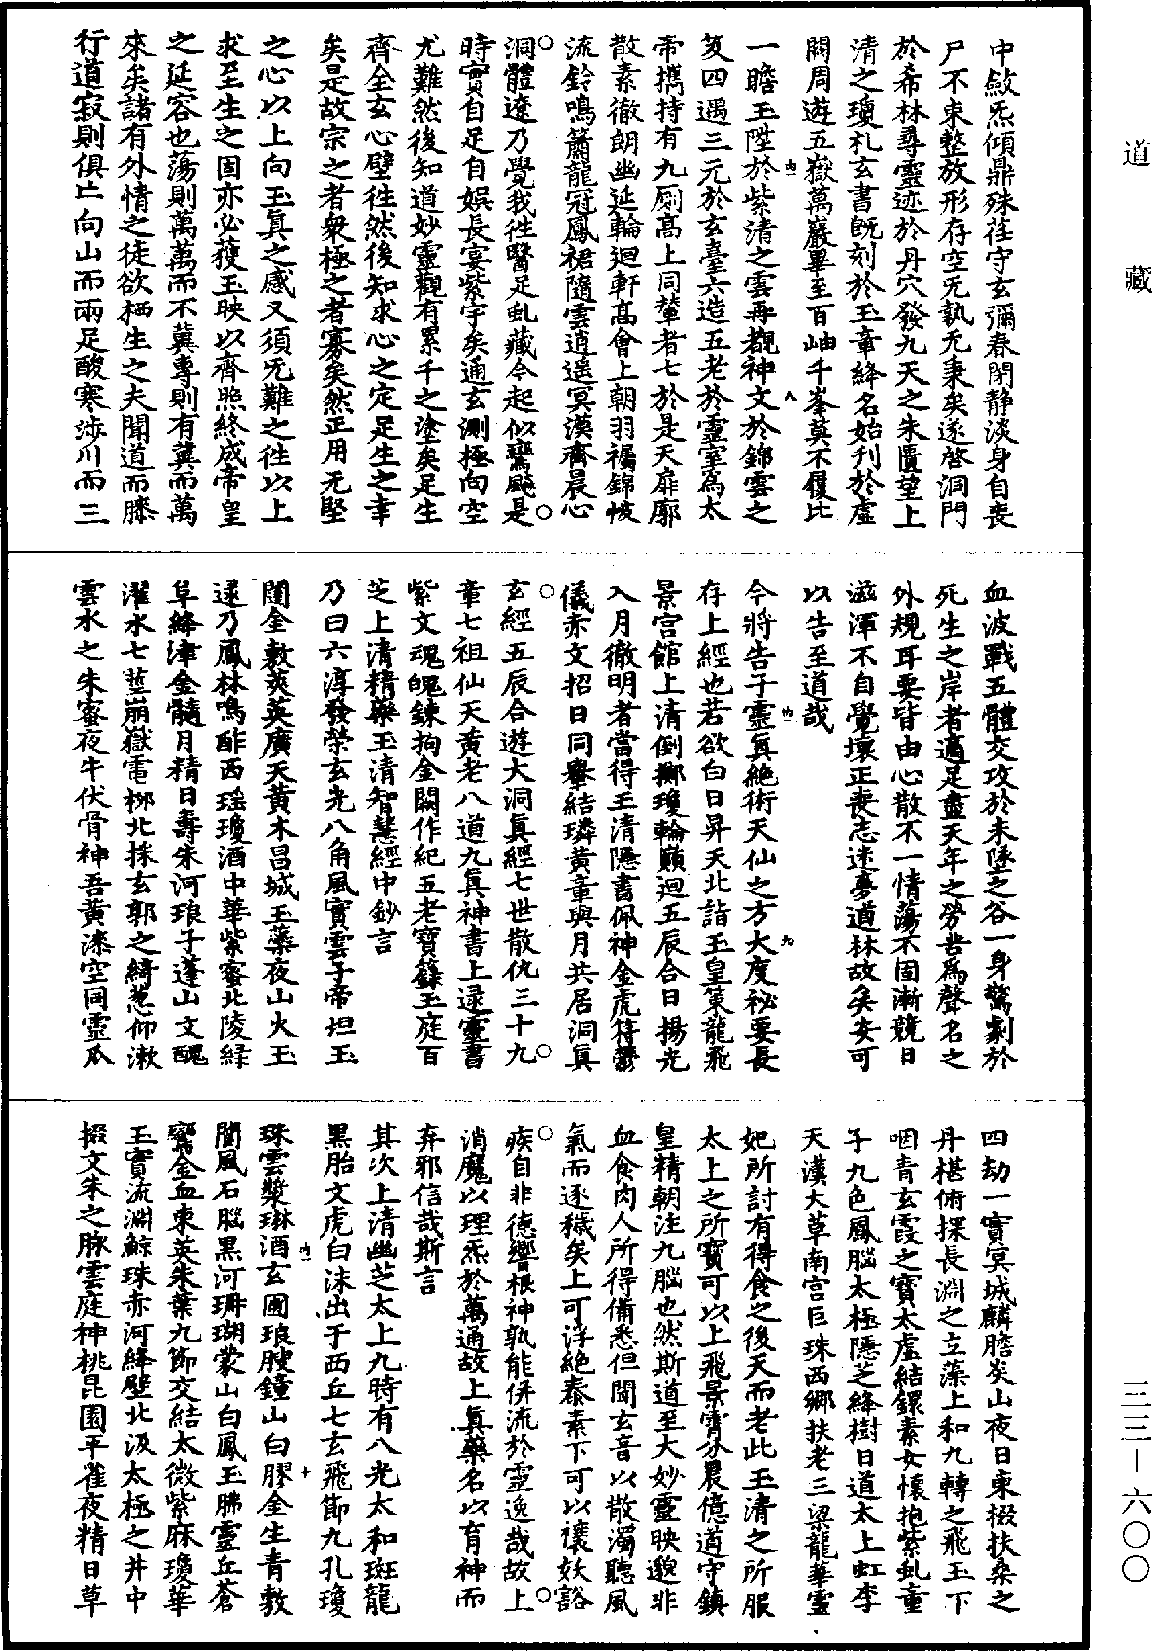 道藏
三三—六〇〇
中斂炁傾鼎殊荏守玄彌春閉静淡身自喪
尸不束整放形存空无孰无秉矣遂啓洞門
於希林尋靈迹於丹穴發九天之朱匱望上
清之瓊札玄書既刻於玉章絳名始刊於虚
關周遊五嶽萬巖畢至百岫千峯莫不履比
一瞻玉陛於紫清之雲再觀神文於錦雲之
笈四遇三元於玄臺六造五老於靈室為太
帝攜持有九厠高上同輦者七於是天扉廓
散素徹朗幽延輪迴軒高會上朝羽襦錦帔
流鈴鳴簫龍冠鳳裙隨雲逍遥冥漢齊晨心
洞體遼乃覺我徃豎足虬藏今起似驚飈是
時實自足自娱長宴紫宇矣通玄測極向空
尤難然後知道妙靈觀有累千之塗矣足生
齊全玄心壁徃然後知求心之定足生之幸
矣是故宗之者衆極之者寡矣然正用无堅
之心以上向玉真之感又須无難之徃以上
求至生之固亦必獲玉映以齊照終成帝皇
之延容也蕩則萬萬而不冀專則有冀而萬
來矣諸有外情之徒欲栖生之夫聞道而滕
行道寂則俱亡向山而兩足酸寒涉川而三
血波戰五體交攻於未墜之谷一身驚劇於
死生之岸者適足盡天年之勞咎為聲名之
外規耳要皆由心散不一情蕩不固漸競日
滋渾不自覺壞正喪志迷夢道林故矣安可
以告至道哉
今將告子靈真絶術天仙之方大度祕要長
存上經也若欲白日昇天北詣玉皇策龍飛
景宫館上清倒擲瓊輪顛迴五辰合日揚光
入月徹明者當得玉清隱書佩神金虎符欝
儀赤文招日同轝結璘黄章與月共居洞真
玄經五辰合遊大洞真經七世散仇三十九
章七祖仙天黄老八道九真神書上逯靈書
紫文魂魄鍊拘金闕作紀五老寶籙玉庭百
芝上清精藥玉清智慧經中鈔言
乃曰六淳發榮玄光八角風實雲子帝坦玉
闉金敷莢英廣天黄木昌城玉藥夜山火玉
逯乃鳳林鳴酢西瑶瓊酒中華紫蜜北陵緑
阜絳津金髓月精日壽朱河琅子蓬山文醜
濯水七莖崩嶽電栁北採玄郭之綺葱仰漱
雲水之朱蜜夜牛伏骨神吾黄漆空同靈瓜
四劫一實冥城麟膽炎山夜日東掇扶桑之
丹椹俯探長淵之立藻上和九轉之飛玉下
咽青玄霞之寶太虚結鏍素女懷抱紫虬童
子九色鳳腦太極隱芝絳樹日道太上虹李
天漢大草南宫巨珠西鄉扶老三梁龍華靈
妃所討有得食之後天而老此玉清之所服
太上之所寶可以上飛景霄沙晨億道守鎮
皇精朝注九腦也然斯道至大妙靈映邈非
血食肉人所得備悉但聞玄音以散濁聽風
氣而逐穢矣上可浮絶泰素下可以禳妖豁
疾自非德響根神孰能併流於靈逸哉故上
消魔以理炁於萬通故上真藥名以育神而
弃邪信哉斯言
其次上清幽芝太上九時有八光太和斑龍
黑胎文虎白沫出于西丘七玄飛節九孔瓊
珠雲漿琳酒玄圃琅腴鐘山白膠金生青敷
閬風石腦黒河珊瑚蒙山白鳳玉胇靈丘蒼
鸞金血東英朱葉九節交結太微紫麻瓊華
玉實流淵鯨珠赤河絳壁北汲太極之井中
掇文朱之脉雲庭神桃昆園平雀夜精日草